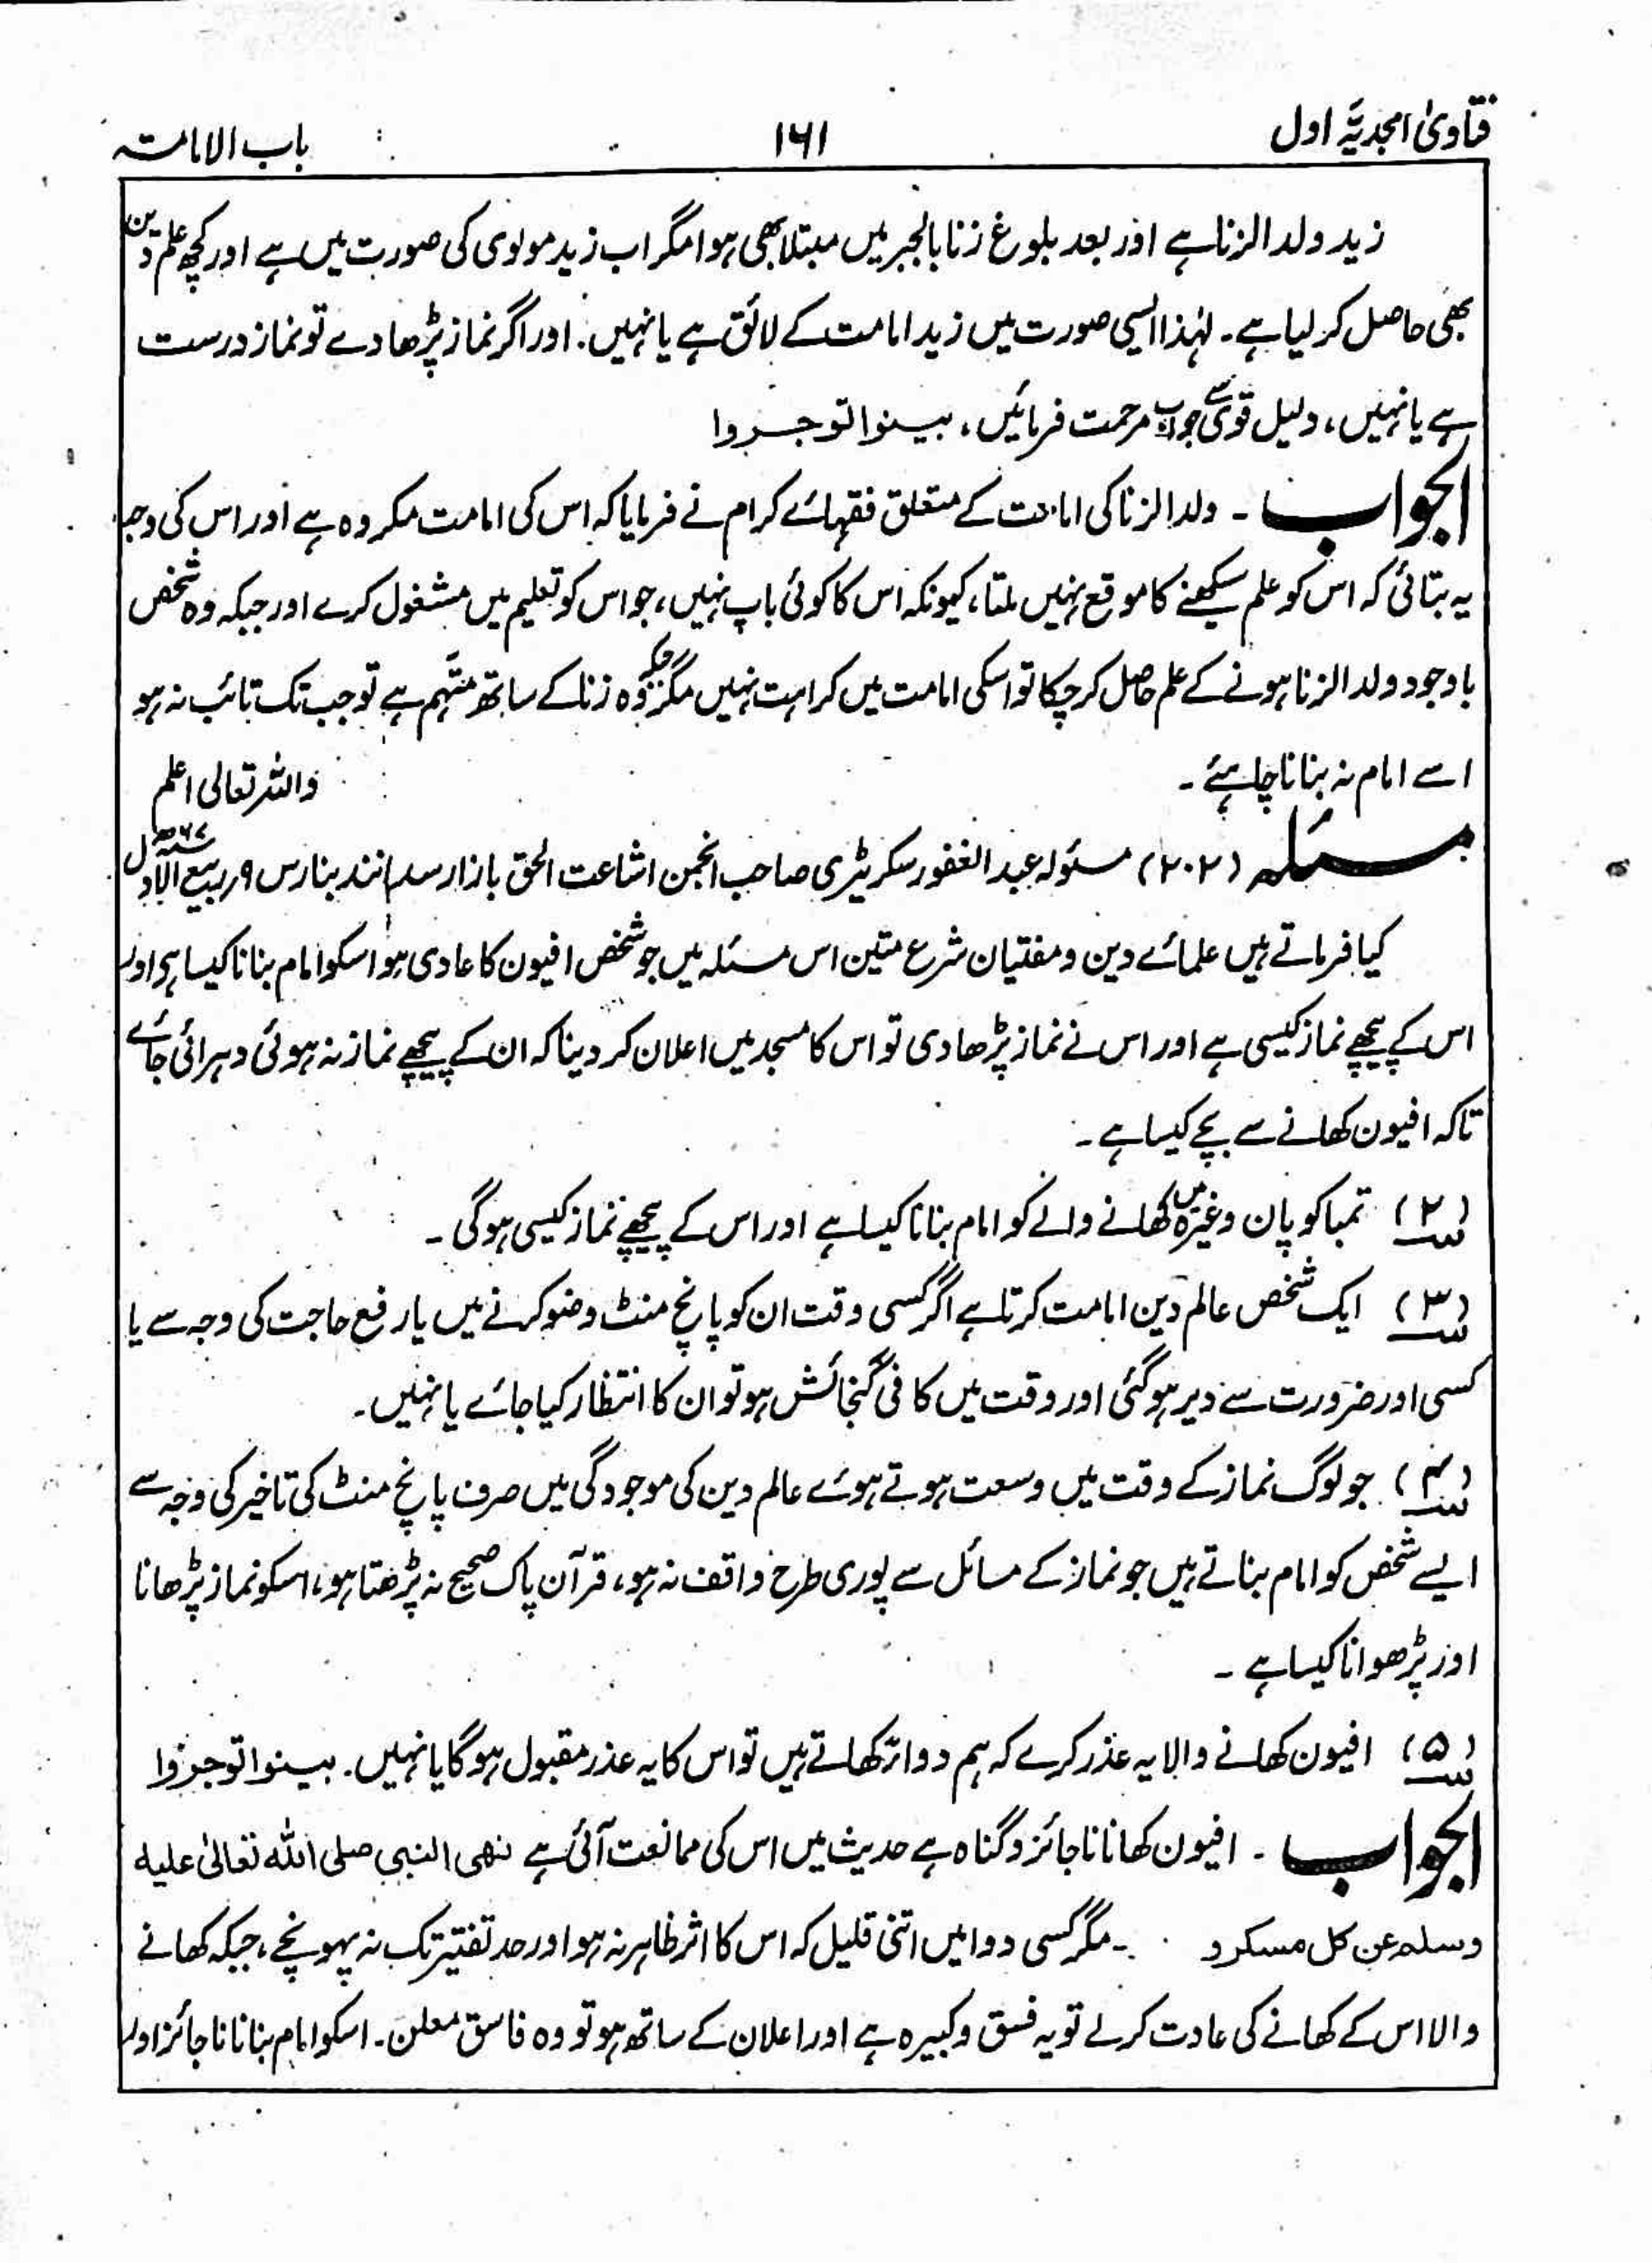 فتاویٰ امجدیہ اول
۱۶۱
باب الامامتہ
زید ولد الزنا ہے اور بعد بلوغ زنا بالجبر میں مبتلا بھی ہوا مگر اب زید مولوی کی صورت میں ہے اور کچھ علم دین
بھی حاصل کر لیا ہے۔ لہٰذا ایسی صورت میں زید امامت کے لائق ہے یا نہیں۔ اور اگر نماز پڑھا دے تو نماز درست
ہے یا نہیں، دلیل قوی سے جواب مرحمت فرمائیں، بینوا توجروا
الجواب ۔ ولد الزنا کی امامت کے متعلق فقہائے کرام نے فرمایا کہ اس کی امامت مکروہ ہے اور اس کی وجہ
یہ بتائی کہ اس کو علم سیکھنے کا موقع نہیں ملتا، کیونکہ اس کا کوئی باپ نہیں، جو اس کو تعلیم میں مشغول کرے اور جبکہ وہ شخص
باوجود ولد الزنا ہونے کے علم حاصل کر چکا تو اسکی امامت میں کراہت نہیں مگر جبکہ وہ زنا کے ساتھ متہم ہے تو جب تک تائب نہ ہو
اسے امام نہ بنانا چاہئے ۔ واللہ تعالی اعلم
مسئلہ (۲۰۲) مسئولہ عبد الغفور سکریٹری صاحب انجمن اشاعت الحق بازار سدانند بنارس ۹ ربیع الاول
کیا فرماتے ہیں علمائے دین و مفتیان شرع متین اس مسئلہ میں جو شخص افیون کا عادی ہو اسکو امام بنانا کیسا ہی اور
اس کے پیچھے نماز کیسی ہے اور اس نے نماز پڑھا دی تو اس کا مسجد میں اعلان کر دینا کہ ان کے پیچھے نماز نہ ہوئی دہرائی جائے
تاکہ افیون کھانے سے بچے کیسا ہے ۔
(۲) تمباکو پان وغیرہ میں کھانے والے کو امام بنانا کیسا ہے اور اس کے پیچھے نماز کیسی ہوگی ۔
(۳) ایک شخص عالم دین امامت کرتا ہے اگر کسی وقت ان کو پانچ منٹ وضو کرنے میں یا رفع حاجت کی وجہ سے یا
کسی اور ضرورت سے دیر ہو گئی اور وقت میں کافی گنجائش ہو تو ان کا انتظار کیا جائے یا نہیں۔
(۴) جو لوگ نماز کے وقت میں وسعت ہوتے ہوئے عالم دین کی موجودگی میں صرف پانچ منٹ کی تاخیر کی وجہ سے
ایسے شخص کو امام بناتے ہیں جو نماز کے مسائل سے پوری طرح واقف نہ ہو، قرآن پاک صحیح نہ پڑھتا ہو، اسکو نماز پڑھانا
اور پڑھوانا کیسا ہے ۔
(۵) افیون کھانے والا یہ عذر کرے کہ ہم دواءً کھاتے ہیں تو اس کا یہ عذر مقبول ہوگا یا نہیں۔ بینوا توجروا
الجواب ۔ افیون کھانا ناجائز و گناہ ہے حدیث میں اس کی ممانعت آئی ہے نھی النبی صلی اللہ تعالیٰ علیہ
وسلم عن کل مسکر و ۔ مگر کسی دوا میں اتنی قلیل کہ اس کا اثر ظاہر نہ ہو اور حد تفتیر تک نہ پہونچے، جبکہ کھانے
والا اس کے کھانے کی عادت کر لے تو یہ فسق و کبیرہ ہے اور اعلان کے ساتھ ہو تو وہ فاسق معلن۔ اسکو امام بنانا ناجائز اور